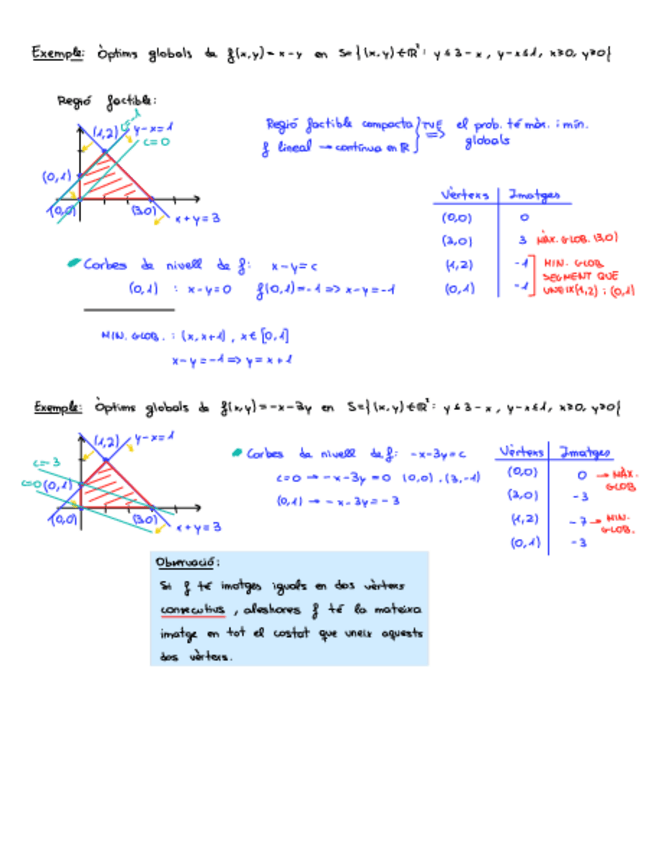 Exemple: Òptims globals de f(x,y)=x-y en S={(x,y)∈ℝ²: y≤3-x, y-x≤1, x≥0, y≥0}
Regió factible:
c=-1
(1,2) y-x=1
c=0
(0,1)
(0,0) (3,0)
x+y=3
Regió factible compacta } TVE ⇒ el prob. té màx. i mín.
f lineal → contínua en ℝ globals
Vèrtexs Imatges
(0,0) 0
(3,0) 3 MÀX. GLOB. (3,0)
(1,2) -1 MIN. GLOB
SEGMENT QUE
(0,1) -1 UNEIX (1,2) i (0,1)
Corbes de nivell de f: x-y=c
(0,1) : x-y=0 f(0,1)=-1 ⇒ x-y=-1
MIN. GLOB. : (x, x+1), x∈[0,1]
x-y=-1 ⇒ y=x+1
Exemple: Òptims globals de f(x,y)=-x-3y en S={(x,y)∈ℝ²: y≤3-x, y-x≤1, x≥0, y≥0}
(1,2) y-x=1
c=-3
c=0 (0,1)
(0,0) (3,0)
x+y=3
Corbes de nivell de f: -x-3y=c
c=0 → -x-3y=0 (0,0), (3,-1)
(0,1) → -x-3y=-3
Vèrtexs Imatges
(0,0) 0 → MÀX. GLOB
(3,0) -3
(1,2) -7 → MIN. GLOB.
(0,1) -3
Observació:
Si f té imatges iguals en dos vèrtexs
consecutius, aleshores f té la mateixa
imatge en tot el costat que uneix aquests
dos vèrtexs.